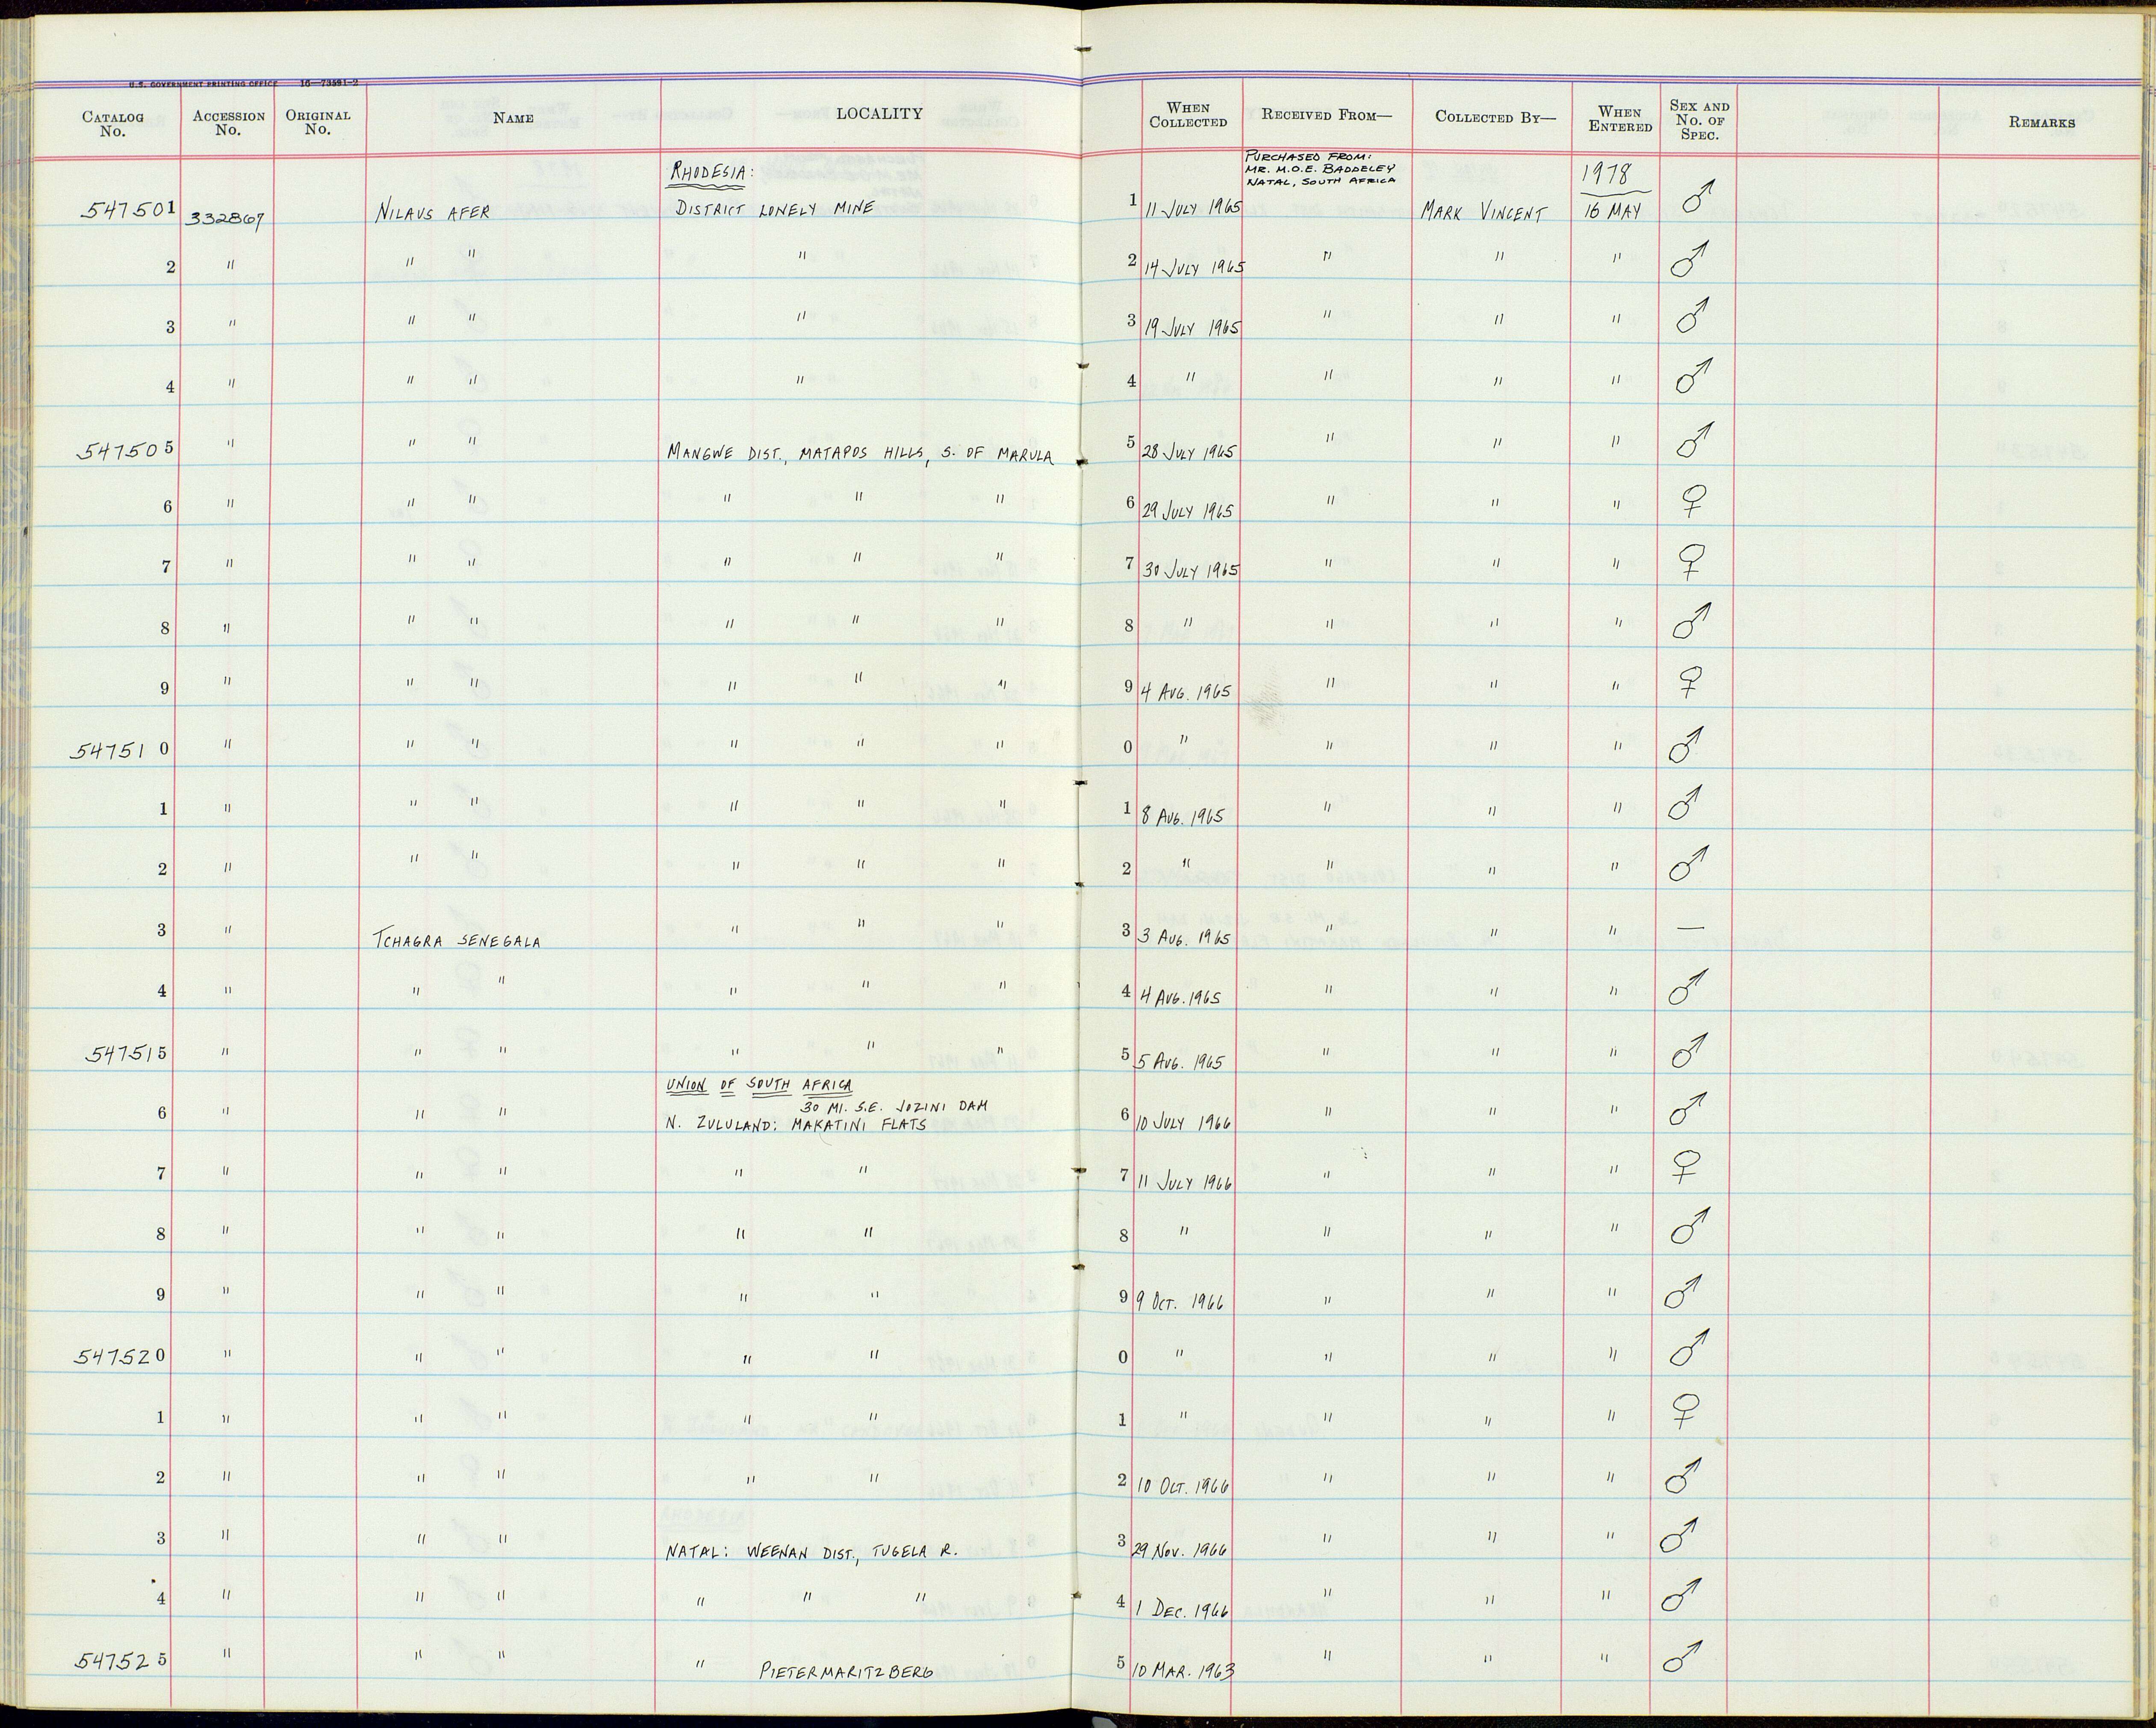 U.S. GOVERNMENT PRINTING OFFICE 16—73591-2
CATALOG No. ACCESSION No. ORIGINAL No. NAME LOCALITY WHEN COLLECTED RECEIVED FROM— COLLECTED BY— WHEN ENTERED SEX AND No. OF SPEC. REMARKS
RHODESIA: PURCHASED FROM: MR. M.O.E. BADDELEY NATAL, SOUTH AFRICA 1978
547501 332867 NILAUS AFER DISTRICT LONELY MINE 1 11 JULY 1965 MARK VINCENT 16 MAY ♂
2 " " " " 2 14 JULY 1965 " " " ♂
3 " " " " 3 19 JULY 1965 " " " ♂
4 " " " " 4 " " " " ♂
547505 " " " MANGWE DIST., MATAPOS HILLS, S. OF MARULA 5 28 JULY 1965 " " " ♂
6 " " " " " " 6 29 JULY 1965 " " " ♀
7 " " " " " " 7 30 JULY 1965 " " " ♀
8 " " " " " " 8 " " " " ♂
9 " " " " " " 9 4 AUG. 1965 " " " ♀
547510 " " " " " " 0 " " " " ♂
1 " " " " " " 1 8 AUG. 1965 " " " ♂
2 " " " " " " 2 " " " " ♂
3 " TCHAGRA SENEGALA " " " 3 3 AUG. 1965 " " " —
4 " " " " " " 4 4 AUG. 1965 " " " ♂
547515 " " " " " " 5 5 AUG. 1965 " " " ♂
UNION OF SOUTH AFRICA
30 MI. S.E. JOZINI DAM
6 " " " N. ZULULAND: MAKATINI FLATS 6 10 JULY 1966 " " " ♂
7 " " " " " 7 11 JULY 1966 " " " ♀
8 " " " " " 8 " " " " ♂
9 " " " " " 9 9 OCT. 1966 " " " ♂
547520 " " " " " 0 " " " " ♂
1 " " " " " 1 " " " " ♀
2 " " " " " 2 10 OCT. 1966 " " " ♂
3 " " " NATAL: WEENAN DIST., TUGELA R. 3 29 NOV. 1966 " " " ♂
4 " " " " " " 4 1 DEC. 1966 " " " ♂
547525 " " " " PIETERMARITZBERG 5 10 MAR. 1963 " " " ♂